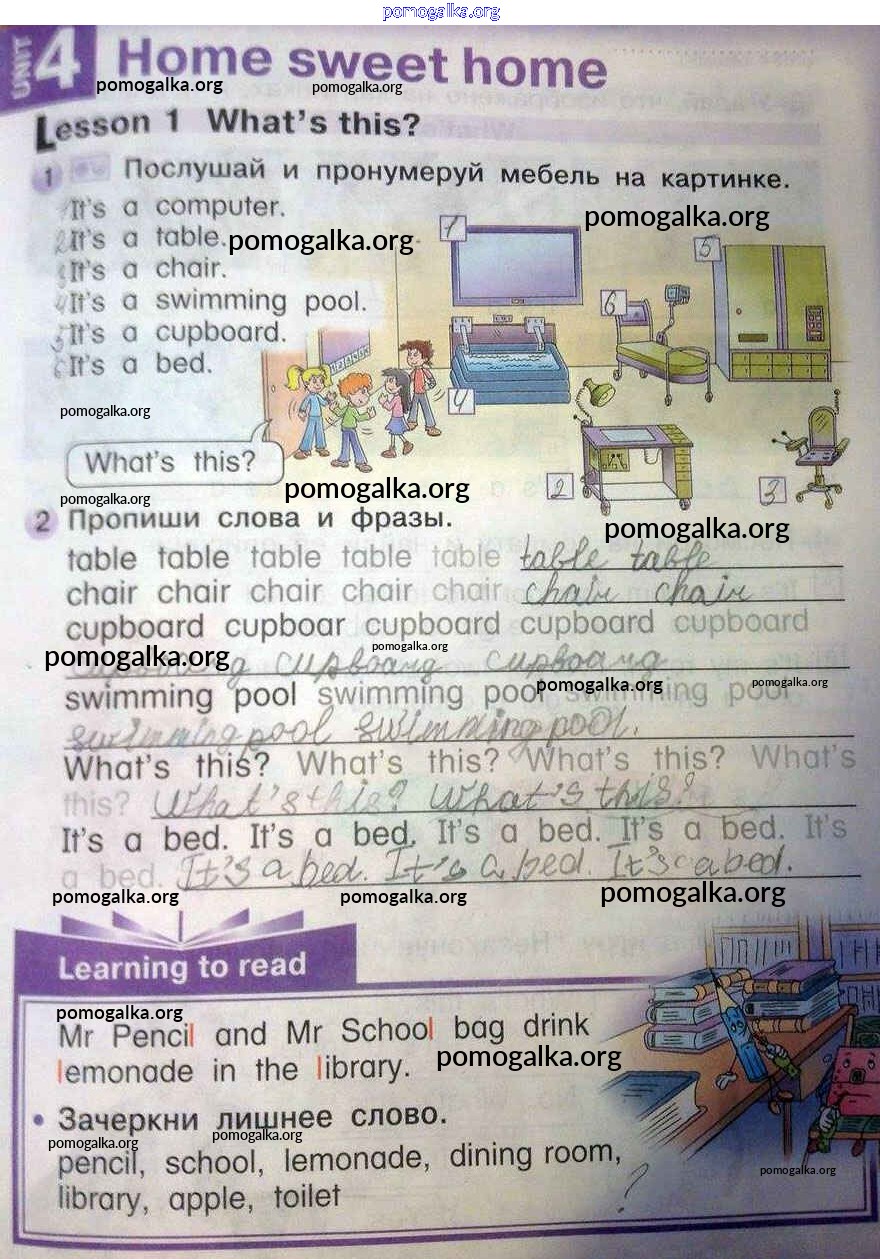 pomogalka.org
UNIT 4 Home sweet home
pomogalka.org pomogalka.org
Lesson 1 What's this?
1 Послушай и пронумеруй мебель на картинке.
1 It's a computer.
pomogalka.org
2 It's a table.
pomogalka.org
3 It's a chair.
4 It's a swimming pool.
5 It's a cupboard.
6 It's a bed.
1
5
6
4
pomogalka.org
What's this?
2
3
pomogalka.org
pomogalka.org
2 Пропиши слова и фразы.
pomogalka.org
table table table table table table table
chair chair chair chair chair chair chair
cupboard cupboar cupboard cupboard cupboard
pomogalka.org
pomogalka.org
swimming pool swimming pool swimming pool
pomogalka.org pomogalka.org
swimming pool swimming pool.
What's this? What's this? What's this? What's
this? What's this? What's this?
It's a bed. It's a bed. It's a bed. It's a bed. It's
a bed. It's a bed. It's a bed. It's a bed.
pomogalka.org pomogalka.org pomogalka.org
Learning to read
pomogalka.org
Mr Pencil and Mr School bag drink
lemonade in the library.
pomogalka.org
• Зачеркни лишнее слово.
pomogalka.org pomogalka.org
pencil, school, lemonade, dining room,
library, apple, toilet ?
pomogalka.org